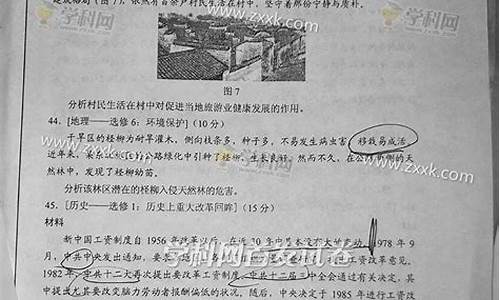 建成格局(图7),依然有百余户村民生活在村中,坚守着那份宁静与质朴。
图7
分析村民生活在村中对促进当地旅游业健康发展的作用。
44. [地理——选修6:环境保护](10分)
干旱区的柽柳为耐旱灌木,侧向枝条多,种子多,不易发生病虫害,移栽易成活。
近年来,某
路绿化中引种了柽柳,生长良好。然而不久,在公路
侧的天
然林中,发现了柽柳幼苗。
分析该林区潜在的柽柳入侵天然林的危害。
45. [历史——选修1:历史上重大改革回眸](15分)
材料
新中国工资制度自1956年改革以后,在近30年中基本没有大的变动。1978年9
月,中共中央发出通知,要
工资改革意见。
1982年,中共十二大再次提出要改革工资制度。中共十二届三中全会通过有关决定,其
中提出尤其要改变脑力劳动者报酬偏低的状况。随后,中央决定于1985年进行工资改
学科网
www.zxxk.com
学科网
www.zxxk.com
www.zxxk.com
学科网
www.zxxk.com
学科网首发试卷